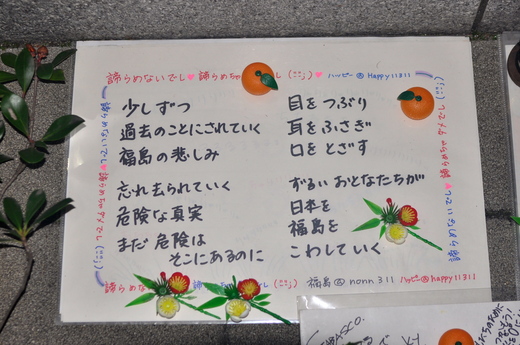 諦めないでし♥諦めちゃ し(;;)♥ ハッピー@Happy11311
少しずつ
過去のことにされていく
福島の悲しみ
忘れ去られていく
危険な真実
まだ 危険は
そこにあるのに
目をつぶり
耳をふさぎ
口をとざす
ずるい おとなたちが
日本を
福島を
こわしていく
諦めな
福島@nonn311 ハッピー@happy11311